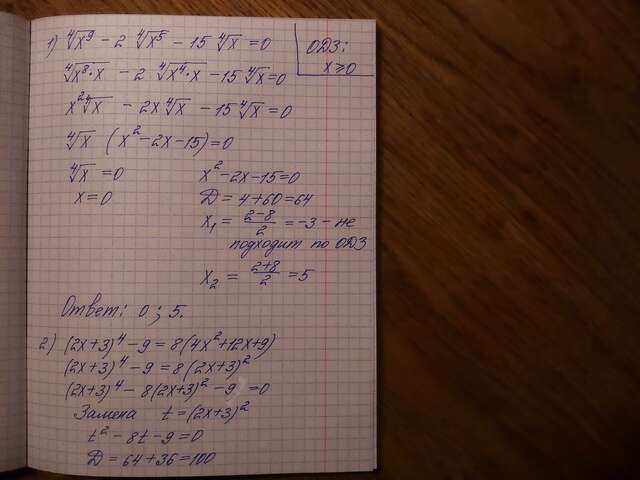 1) ∜x⁹ - 2 ∜x⁵ - 15 ∜x = 0
ОДЗ:
x ⩾ 0
∜x⁸·x - 2 ∜x⁴·x - 15 ∜x = 0
x² ∜x - 2x ∜x - 15 ∜x = 0
∜x (x² - 2x - 15) = 0
∜x = 0
x = 0
x² - 2x - 15 = 0
Д = 4 + 60 = 64
x₁ = (2-8)/2 = -3 - не
подходит по ОДЗ
x₂ = (2+8)/2 = 5
Ответ: 0; 5.
2) (2x+3)⁴ - 9 = 8(4x²+12x+9)
(2x+3)⁴ - 9 = 8(2x+3)²
(2x+3)⁴ - 8(2x+3)² - 9 = 0
Замена t = (2x+3)²
t² - 8t - 9 = 0
Д = 64 + 36 = 100